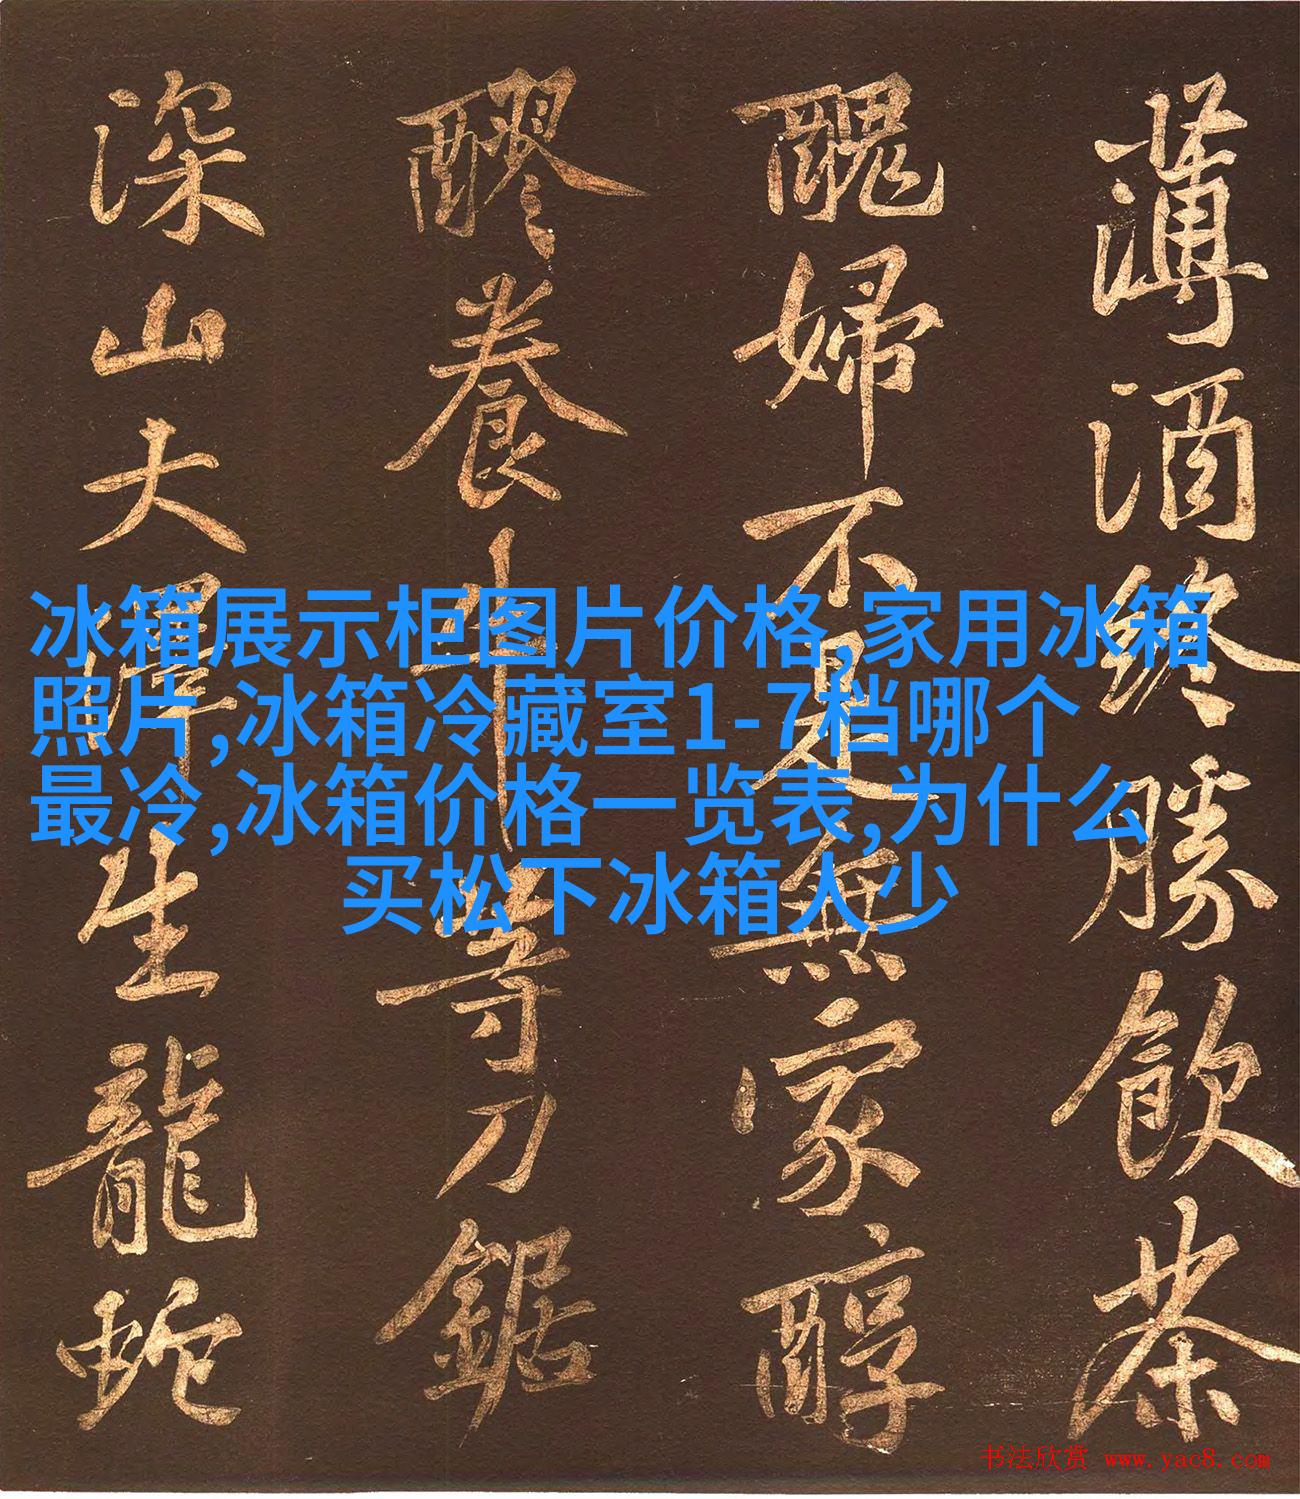 薄酒終勝飲茶
醜婦不是無家醇
醪養牛等刀鋸
深山大澤生龍蛇
冰箱展示柜图片价格,家用冰箱
照片,冰箱冷藏室1-7档哪个
最冷,冰箱价格一览表,为什么
买松下冰箱人少
书法欣赏 www.yac8.com